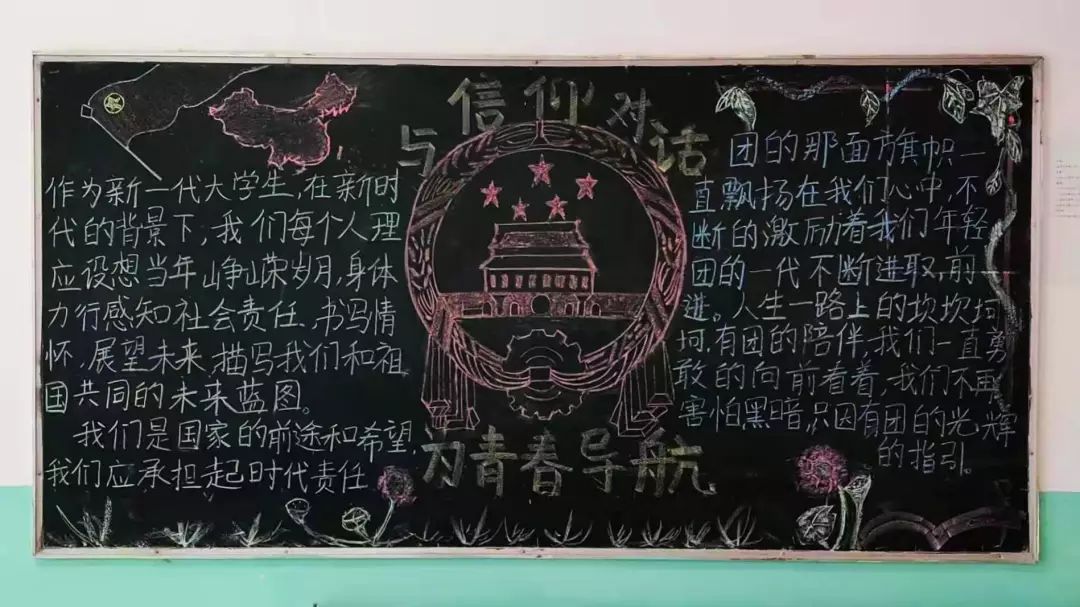 与信仰对话
为青春导航
作为新一代大学生,在新时
代的背景下,我们每个人理
应设想当年峥嵘岁月,身体
力行感知社会责任、书写情
怀,展望未来,描写我们和祖
国共同的未来蓝图。
我们是国家的前途和希望,
我们应承担起时代责任
团的那面旗帜一
直飘扬在我们心中,不
断的激励着我们年轻
团的一代不断进取,前
进。人生一路上的坎坎坷
坷,有团的陪伴,我们一直勇
敢的向前看着,我们不再
害怕黑暗,只因有团的光辉
的指引。